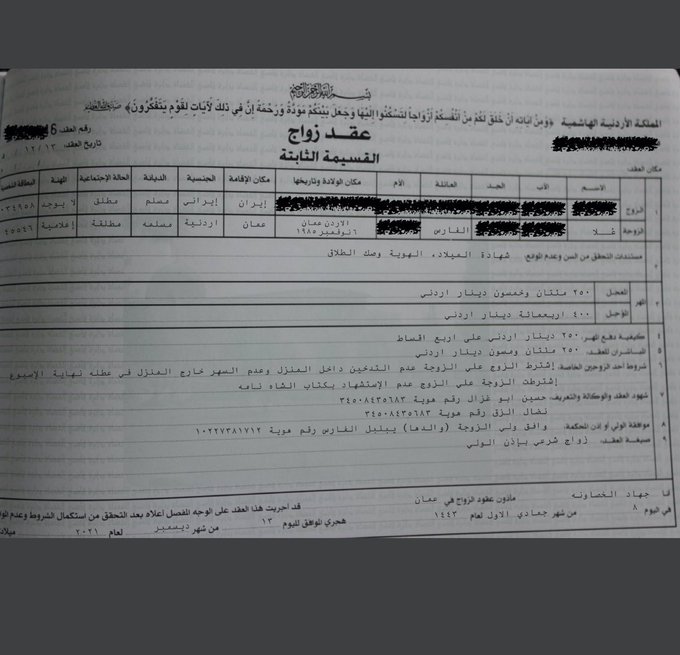 بسم الله الرحمن الرحيم
﴿وَمِنْ آيَاتِهِ أَنْ خَلَقَ لَكُمْ مِنْ أَنْفُسِكُمْ أَزْوَاجاً لِتَسْكُنُوا إِلَيْهَا وَجَعَلَ بَيْنَكُمْ مَوَدَّةً وَرَحْمَةً إِنَّ فِي ذَلِكَ لَآيَاتٍ لِقَوْمٍ يَتَفَكَّرُونَ﴾ صدق الله العظيم
المملكة الأردنية الهاشمية
عقد زواج
القسيمة الثابتة
رقم العقد: 6
تاريخ العقد: ١٣ / ١٢ /
مكان العقد:
الاسم الأب الجد العائلة الأم مكان الولادة وتاريخها مكان الإقامة الجنسية الديانة الحالة الإجتماعية المهنة البطاقة
١ الزوج إيران إيراني مسلم مطلق لا يوجد ٠٣٤٩٥٨
الزوجة عُلا الفارس الاردن عمان ٦ نوفمبر ١٩٨٥ عمان اردنية مسلمه مطلقة إعلامية ٤٥٥٤٦
٢ مستندات التحقق من السن وعدم الموانع: شهادة الميلاد، الهوية وصك الطلاق
٣ المهر المعجل ٢٥٠ مئتان وخمسون دينار اردني
المؤجل ٤٠٠ اربعمائة دينار اردني
٤ كيفية دفع المهر: ٢٥٠ دينار اردني على اربع اقساط
٥ المباشران للعقد: ٢٥٠ مئتان ومسون دينار اردني
٦ شروط احد الزوجين الخاصة: إشترط الزوج على الزوجة عدم التدخين داخل المنزل وعدم السهر خارج المنزل في عطله نهاية الإسبوع
إشترطت الزوجة على الزوج عدم الإستشهاد بكتاب الشاه نامه
٧ شهود العقد والوكالة والتعريف: حسين ابو غزال رقم هوية ٣٤٥٠٨٤٣٥٦٨٣
نضال الزق رقم هوية ٣٤٥٠٨٤٣٥٦٨٣
٨ موافقة الولي أو إذن المحكمة: وافق ولي الزوجة (والدها) يبلبل الفارس رقم هوية ١٠٢٢٧٣٨١٧١٢
٩ صيغة العقد: زواج شرعي بإذن الولي
أنا جهاد الخصاونه مأذون عقود الزواج في عمان قد أجريت هذا العقد على الوجه المفصل أعلاه بعد التحقق من استكمال الشروط وعدم
في اليوم ٨ من شهر جمادي الاول لعام ١٤٤٣ هجري الموافق لليوم ١٣ من شهر ديسمبر لعام ٢٠٢١